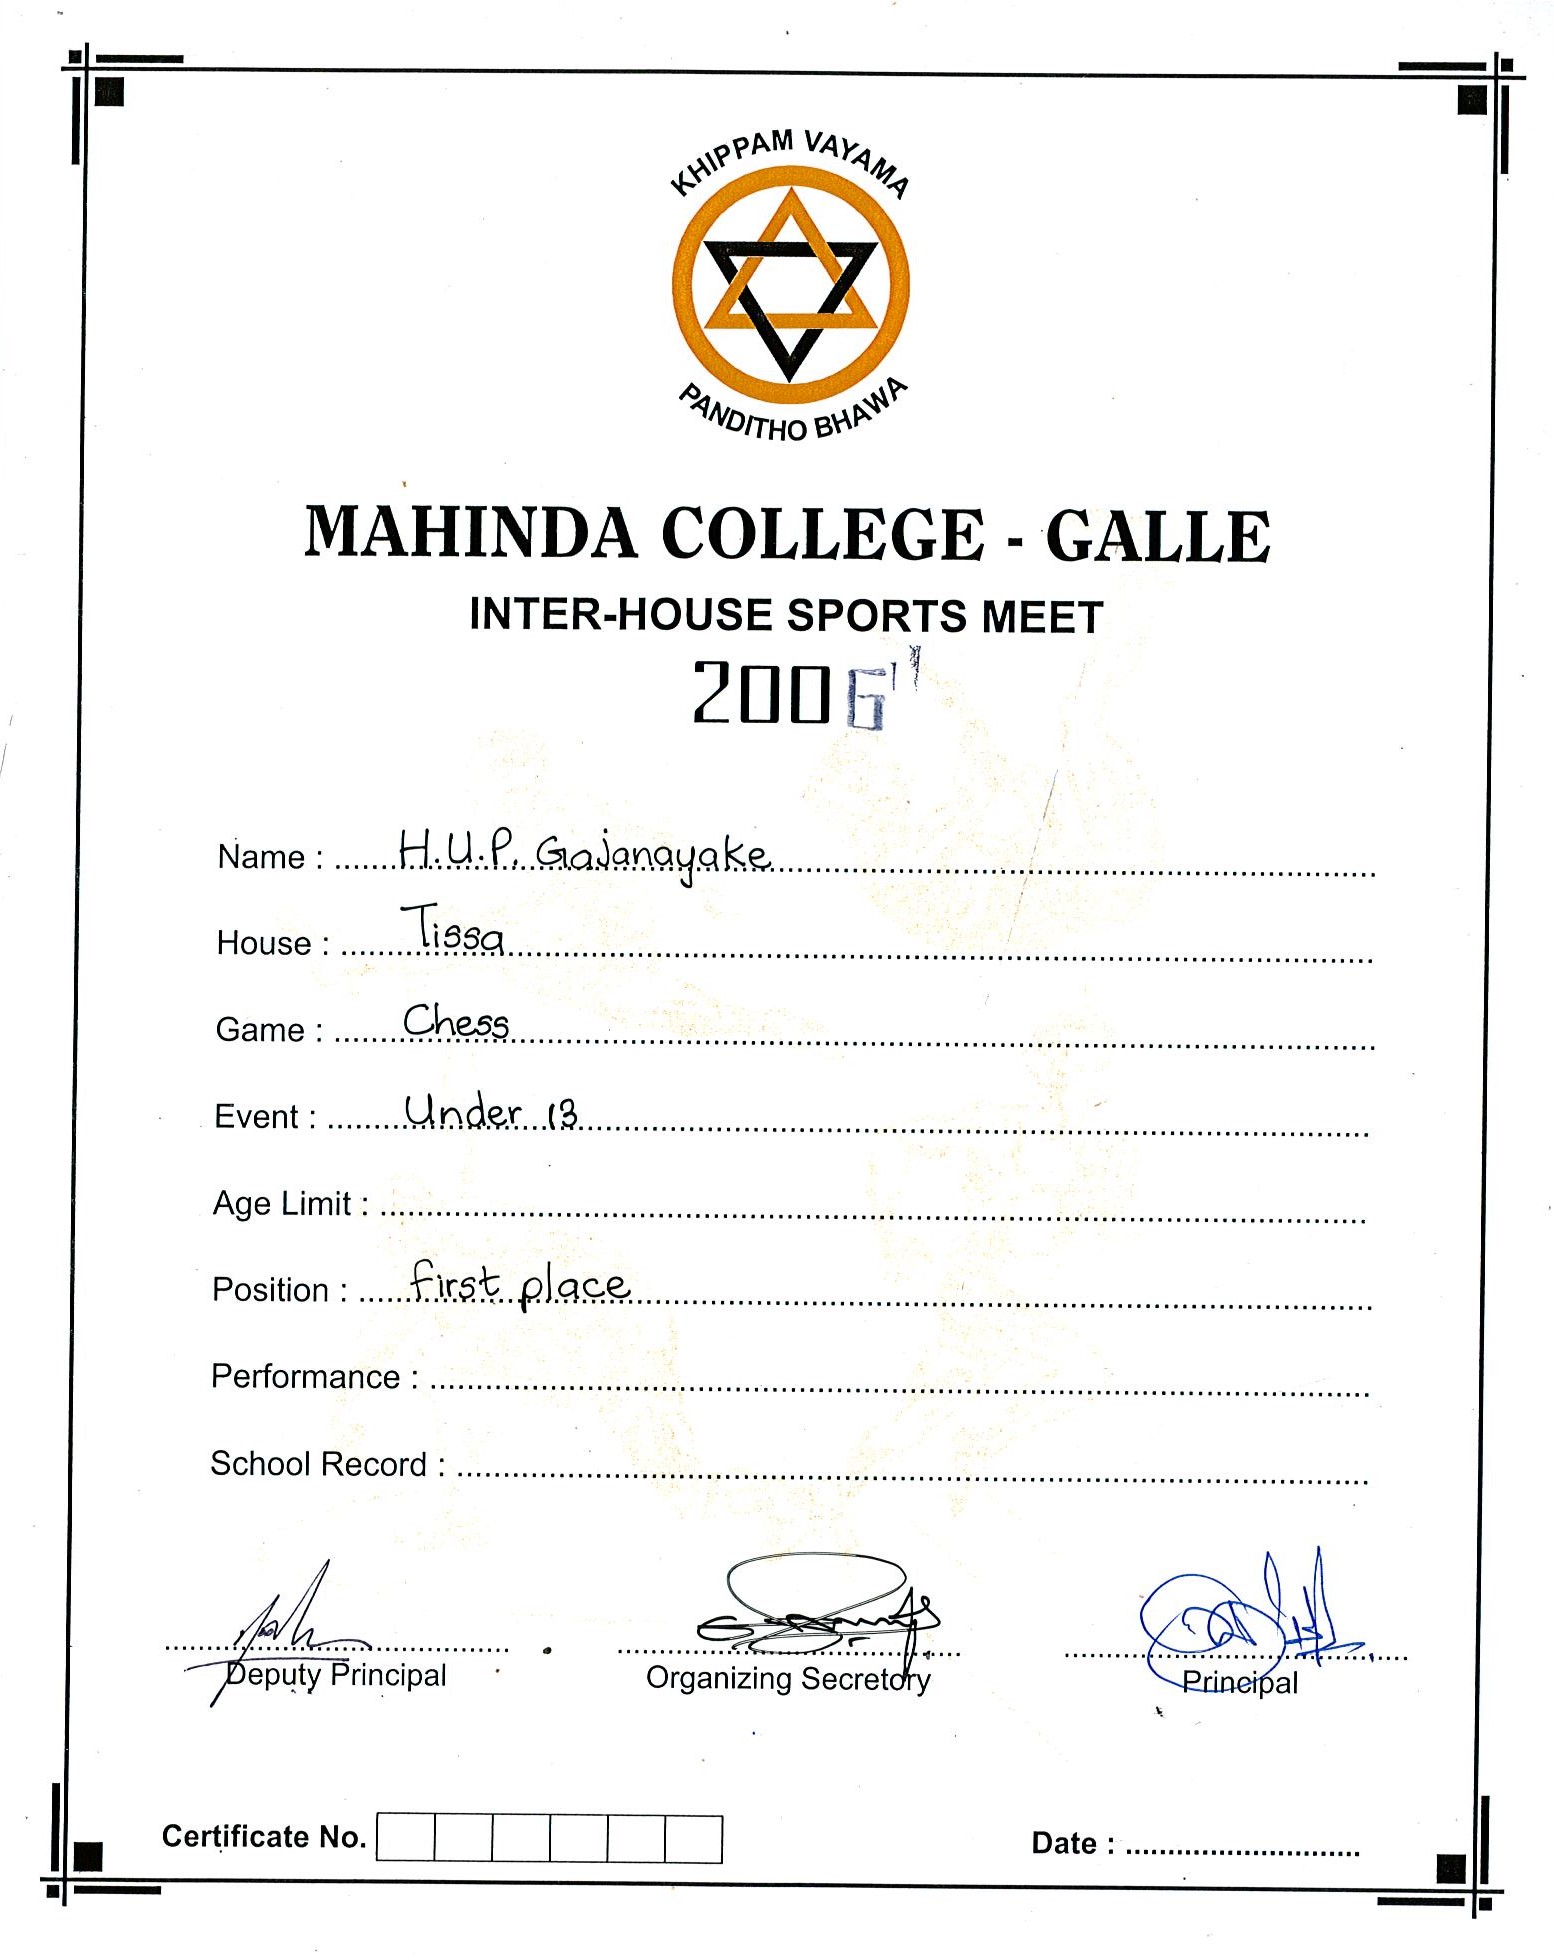 KHIPPAM VAYAMA
PANDITHO BHAWA
MAHINDA COLLEGE - GALLE
INTER-HOUSE SPORTS MEET
2006
Name : H.U.P. Gajanayake
House : Tissa
Game : Chess
Event : Under 13
Age Limit :
Position : first place
Performance :
School Record :
Deputy Principal
Organizing Secretory
Principal
Certificate No.
Date :